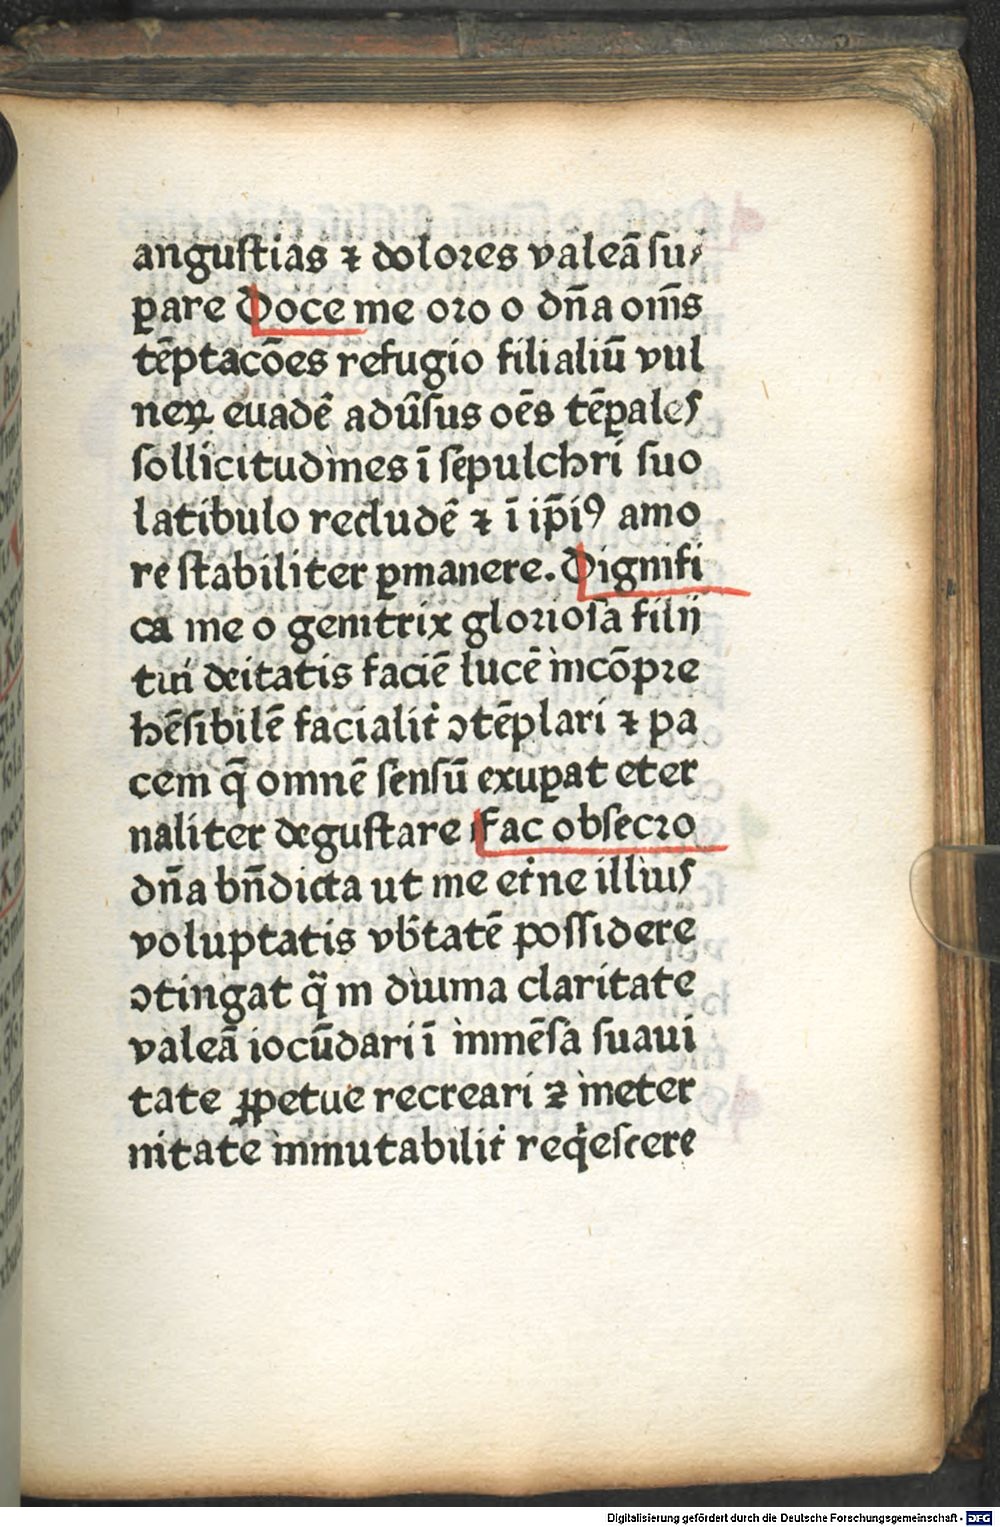 angustias ⁊ dolores valeā su⸗
ꝑare Doce me oro o dn̄a om̄s
tēptacōes refugio filialiū vul
neꝝ euadē adūsus oēs tēꝑales
sollicitudines ī sepulchri suo
latibulo recludē ⁊ ī ip̄iꝰ amo
re stabiliter ꝑmanere. Dignifi
ca me o genitrix gloriosa filij
tui deitatis faciē lucē incōpre
hēsibilē facialit̄ ↄtēplari ⁊ pa
cem q̄ omnē sensū exuꝑat eter
naliter degustare Fac obsecro
dn̄a bn̄dicta ut me et̄ne illius
voluptatis vb̄tatē possidere
ↄtingat q̄ in diuina claritate
valeā iocūdari ī inmēsa suaui
tate ꝓpetue recreari ⁊ in eter
nitate inmutabilit̄ reqescere
Digitalisierung gefördert durch die Deutsche Forschungsgemeinschaft - DFG